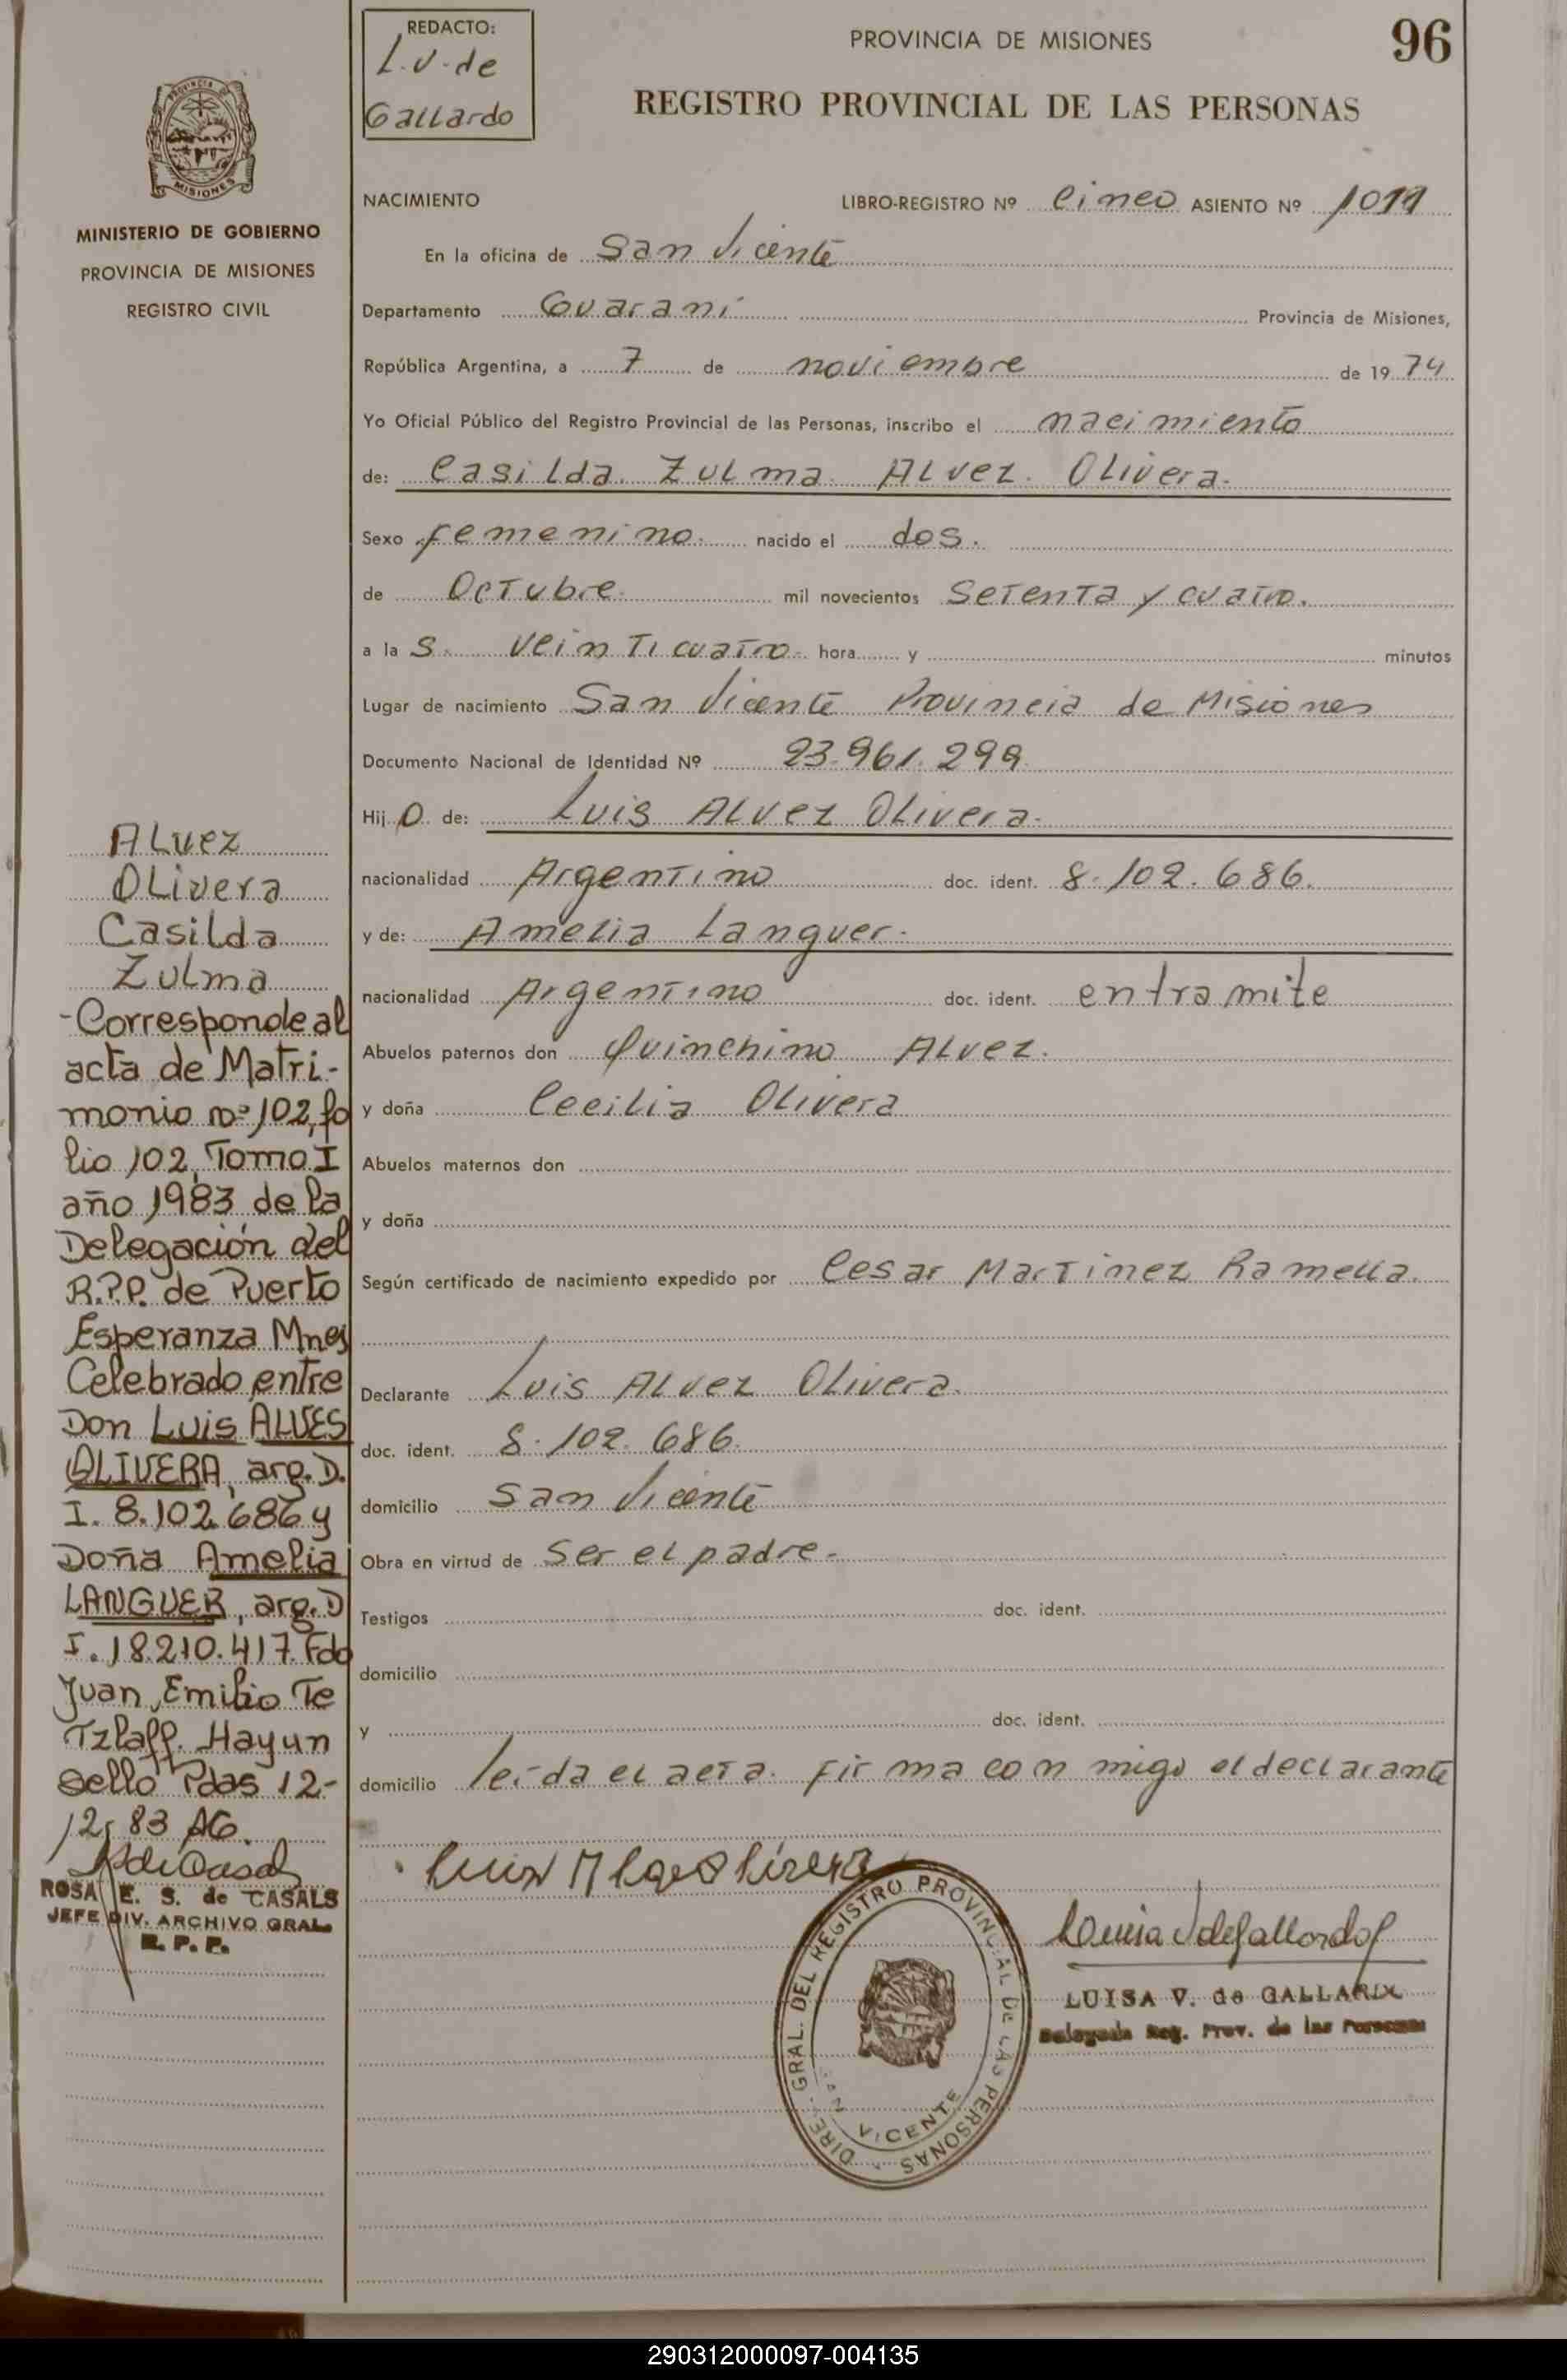 REDACTO:
L.V. de
Gallardo
PROVINCIA DE MISIONES
96
REGISTRO PROVINCIAL DE LAS PERSONAS
MISIONES
MINISTERIO DE GOBIERNO
PROVINCIA DE MISIONES
REGISTRO CIVIL
NACIMIENTO
LIBRO-REGISTRO Nº cinco ASIENTO Nº 1011
En la oficina de San Vicente
Departamento Guaraní Provincia de Misiones,
República Argentina, a 7 de noviembre de 1974
Yo Oficial Público del Registro Provincial de las Personas, inscribo el nacimiento
de: Casilda Zulma Alvez Olivera.
Sexo femenino. nacido el dos.
de Octubre mil novecientos Setenta y cuatro.
a la s. veinticuatro hora y minutos
Lugar de nacimiento San Vicente Provincia de Misiones
Documento Nacional de Identidad Nº 23.961.299
Hij o de: Luis Alvez Olivera.
nacionalidad Argentino doc. ident. 8.102.686.
y de: Amelia Languer.
nacionalidad Argentino doc. ident. entramite
Abuelos paternos don Quinchino Alvez.
y doña Cecilia Olivera
Abuelos maternos don
y doña
Según certificado de nacimiento expedido por Cesar Martinez Ramella.
Declarante Luis Alvez Olivera.
doc. ident. 8.102.686.
domicilio San Vicente
Obra en virtud de Ser el padre.
Testigos doc. ident.
domicilio
y doc. ident.
domicilio leída el acta. firma con migo el declarante
Alvez
Olivera
Casilda
Zulma
-Corresponde al
acta de Matri-
monio nº 102, fo
lio 102, Tomo I
año 1983 de la
Delegación del
R.P.P. de Puerto
Esperanza Mnes
Celebrado entre
Don Luis ALVES
OLIVERA, arg. D.
I. 8.102.686 y
Doña Amelia
LANGUER, arg. D
I. 18.210.417. Fdo
Juan Emilio Te
Tzlaff. Hay un
sello Pdas 12-
12-83 AG.
ROSA E. S. de CASALS
JEFE DIV. ARCHIVO GRAL.
R. P. P.
DIREC. GRAL. DEL REGISTRO PROVINCIAL DE LAS PERSONAS
SAN VICENTE
Luisa V de Gallardo
LUISA V. de GALLARDO
Delegada Reg. Prov. de las Personas
290312000097-004135